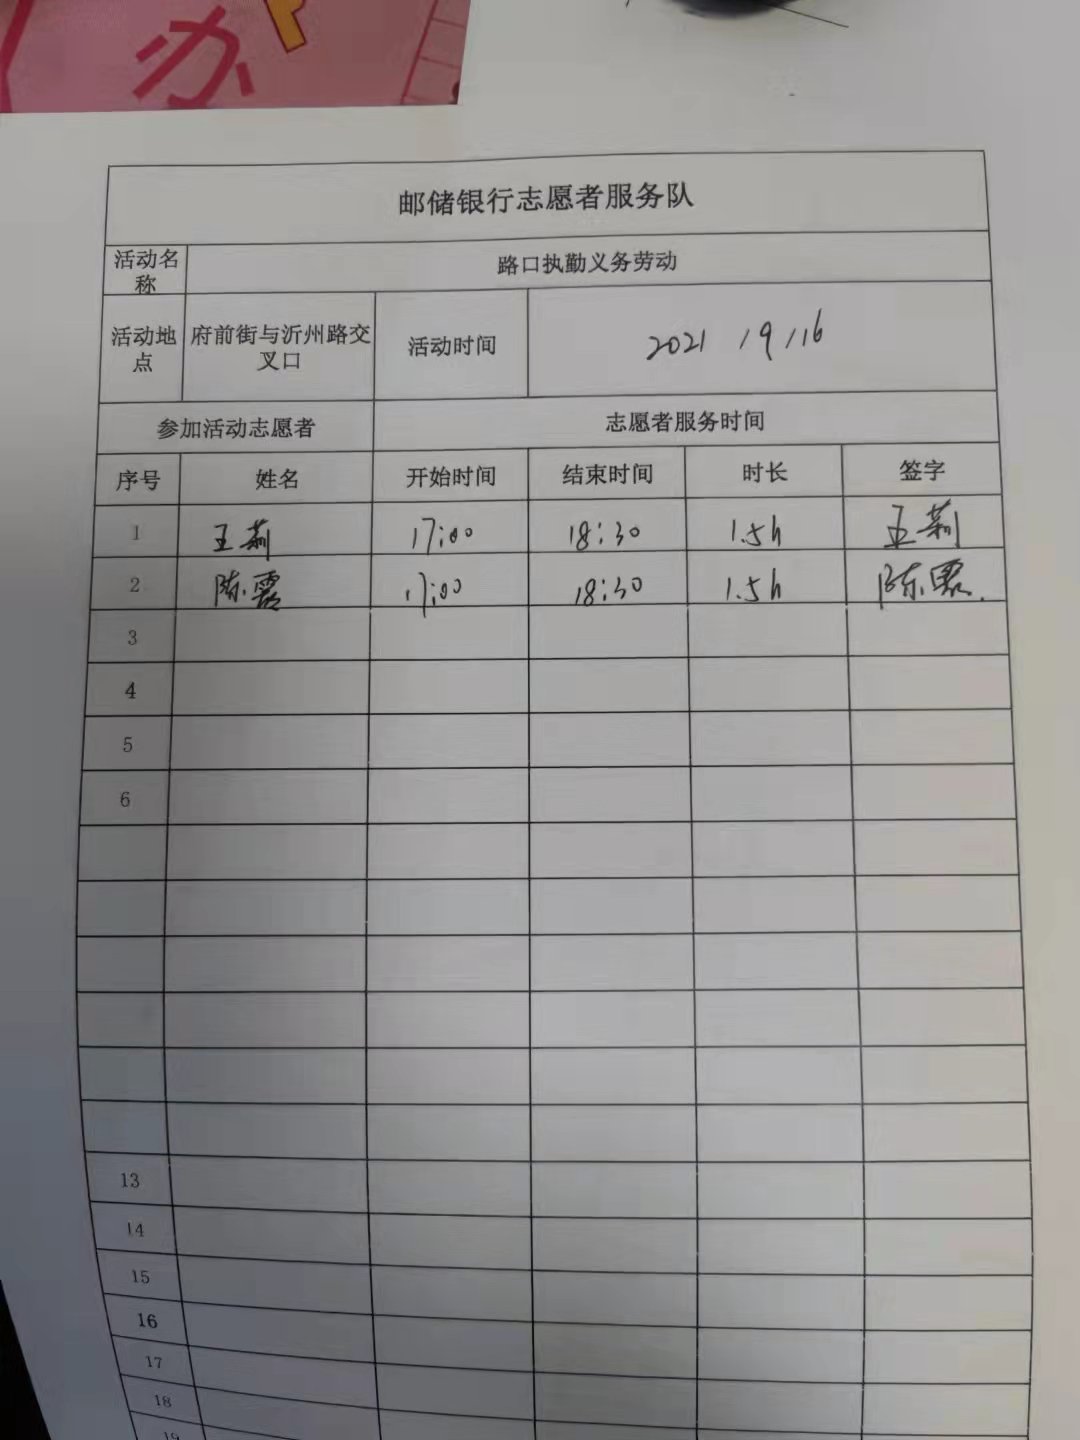 办
邮储银行志愿者服务队
活动名称 路口执勤义务劳动
活动地点 府前街与沂州路交叉口 活动时间 2021 /9/16
参加活动志愿者 志愿者服务时间
序号 姓名 开始时间 结束时间 时长 签字
1 王莉 17:00 18:30 1.5h 王莉
2 陈露 17:00 18:30 1.5h 陈露.
3
4
5
6
13
14
15
16
17
18
19